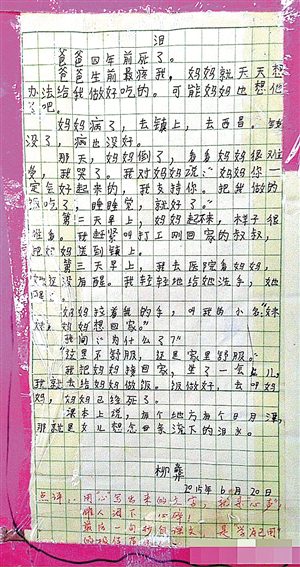 泪
爸爸四年前死了。
爸爸生前最疼我，妈妈就天天想
办法给我做好吃的。可能妈妈也想他
了吧。
妈妈病了，去镇上，去西昌。钱
没了，病也没好。
那天，妈妈倒了，看着妈妈很难
受，我哭了。我对妈妈说：“妈妈你一
定会好起来的，我支持你。把我做的
饭吃了，睡睡觉，就好了。”
第二天早上，妈妈起不来，样子很
难看。我赶紧叫打工刚回家的叔叔，
把妈妈送到镇上。
第三天早上，我去医院看妈妈，
她还没有醒。我轻轻地给她洗手，她
醒了。
妈妈拉着我的手，叫我的小名：“妹
妹，妈妈想回家。”
我问：“为什么了？”
“这里不舒服，还是家里舒服。”
我把妈妈接回家，坐了一会儿，
我就去给妈妈做饭。饭做好，去叫妈
妈，妈妈已经死了。
课本上说，有个地方有个日月潭，
那就是女儿想念母亲流下的泪水。
柳彝
2015年6月20日
点评：用心写出来的文字，
催人泪下，心碎，
最后一句抄自课文，是学以己用